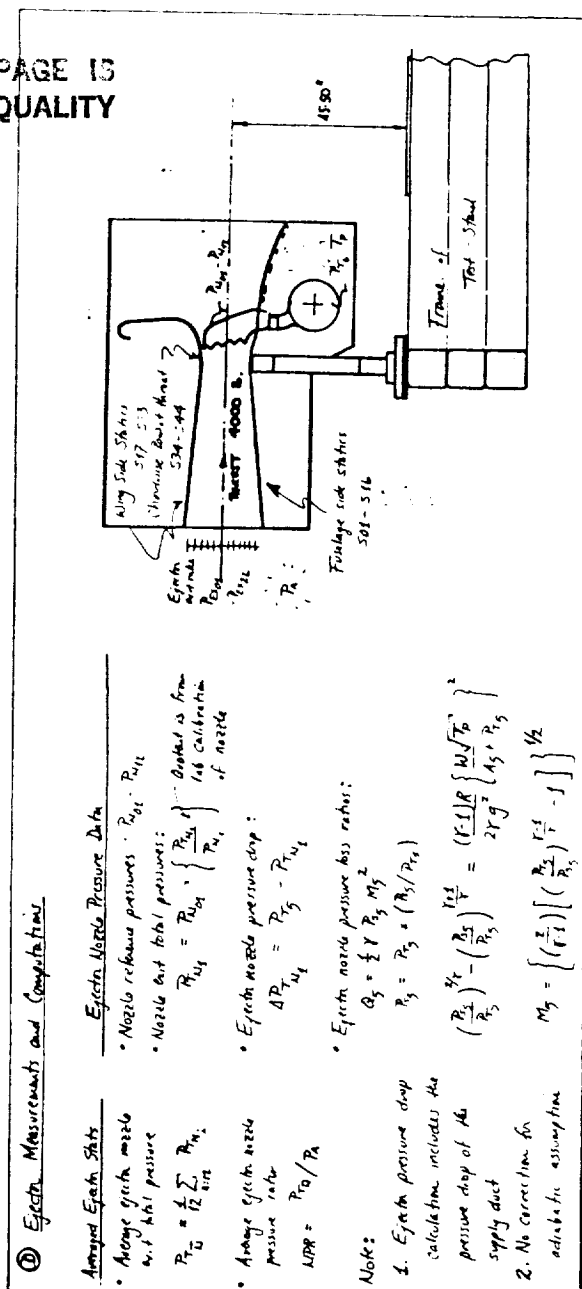 PAGE IS
QUALITY
D Ejector Measurements and Computations
Averaged Ejector Stats
• Average ejector nozzle
exit total pressure
P_T_N̄ = 1/12 Σ P_T_N_i
• Average ejector nozzle
pressure ratio
NPR = P_TN̄/P_A
Note:
1. Ejector pressure drop
calculation includes the
pressure drop of the
supply duct
2. No correction for
adiabatic assumption
Ejector Nozzle Pressure Data
• Nozzle reference pressures · P_N01 - P_N12
• Nozzle exit total pressures:
P_T_N1 = P_N01 · {P_TN1 / P_N1} Quotient is from
lab calibration
of nozzle
• Ejector nozzle pressure drop:
ΔP_T_N1 = P_T5 - P_T_N1
• Ejector nozzle pressure loss ratios:
Q_5 = ½ γ P_S5 M_5²
P_S5 = P_T5 * (P_S5/P_T5)
(P_S5/P_T5)^(2/γ) - (P_S5/P_T5)^((γ+1)/γ) = (γ-1)R/(2γg²) {W√T_P / (A_5 * P_T5)}²
M_5 = {(2/(γ-1)) [(P_T5/P_S5)^((γ-1)/γ) - 1]}^(1/2)
Wing Side Statics
S17 - S33
Chordwise Boost thrust
S34 - S44
Ejector
exit rake
P_EX01
P_EX22
P_A
P_N01 - P_N12
THRUST 4000 lb.
P_T5 T_P
Fuselage side statics
S01 - S16
45.50"
Frame of
Test Stand